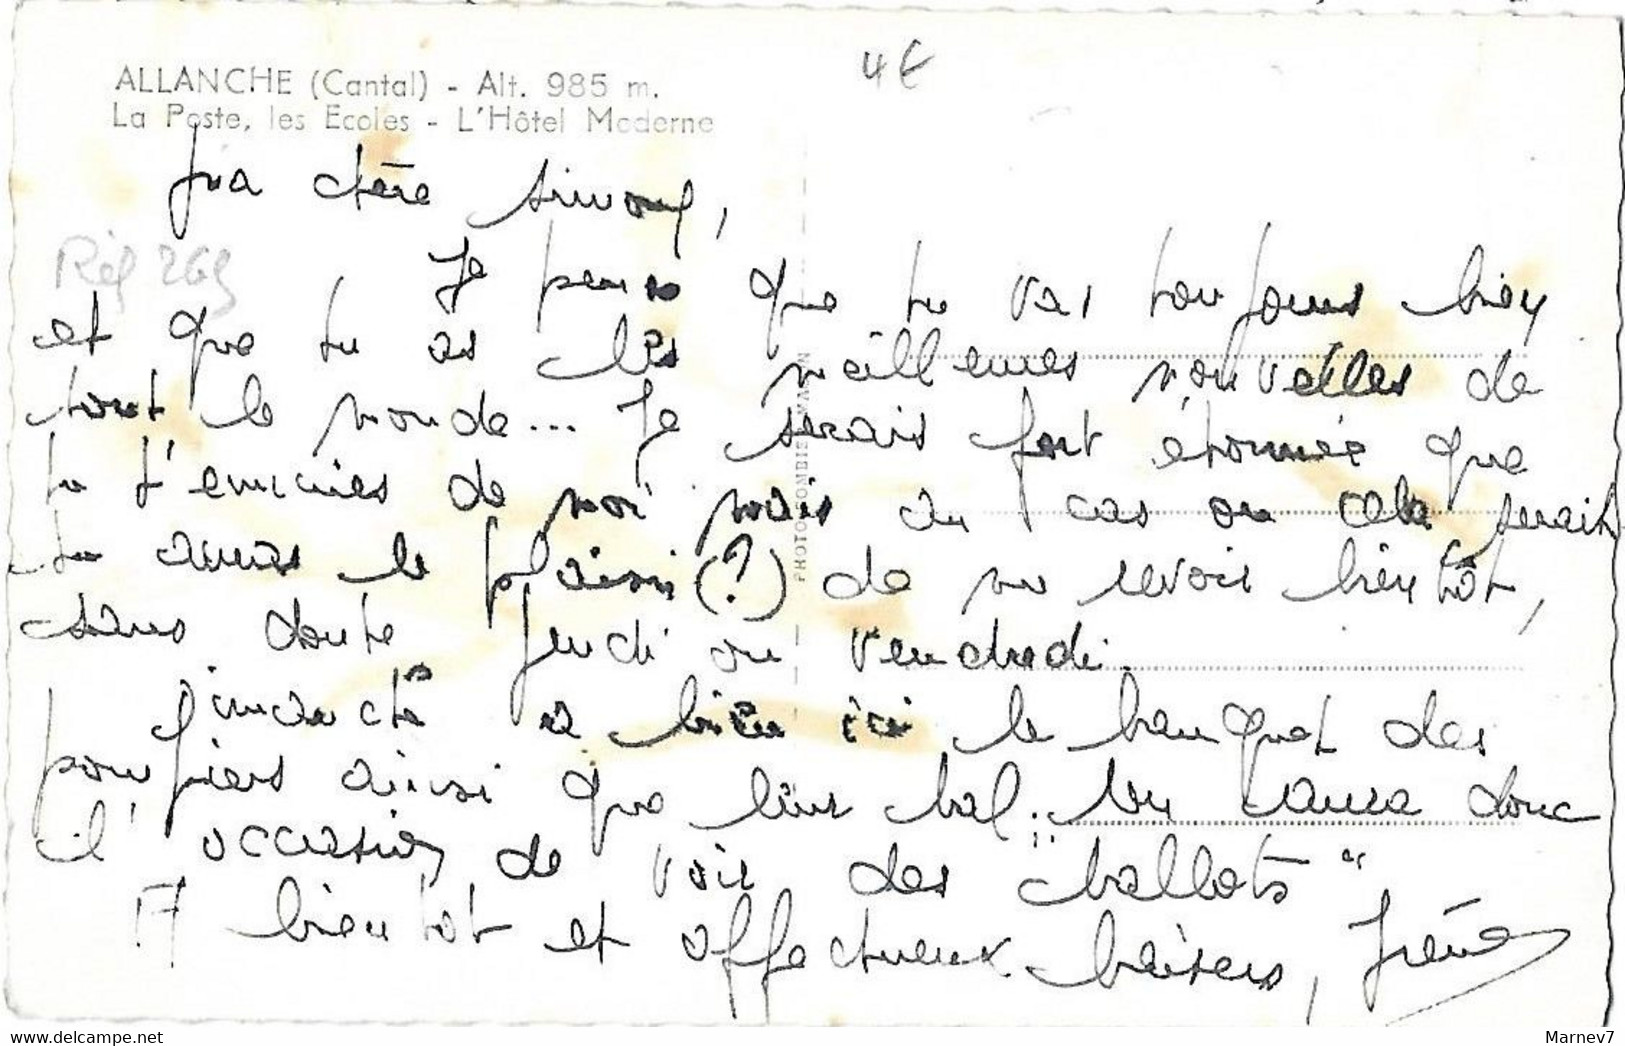 4€
ALLANCHE (Cantal) - Alt. 985 m.
La Poste, les Ecoles - L'Hôtel Moderne
Ma chère Simone,
Réf 269
Je pense que tu vas toujours bien
et que tu as les meilleures nouvelles de
tout le monde... Je serais fort étonnée que
tu t'ennuies de moi mais au cas ou cela serait
tu auras le plaisir (?) de me revoir bientôt,
sans doute jeudi ou vendredi.
Dimanche a lieu ici le banquet des
pompiers ainsi que leur bal. Tu auras donc
l'occasion de voir des "ballots"
A bientôt et affectueux baisers, Irène
PHOTO COMBIER MACON
Marnev7